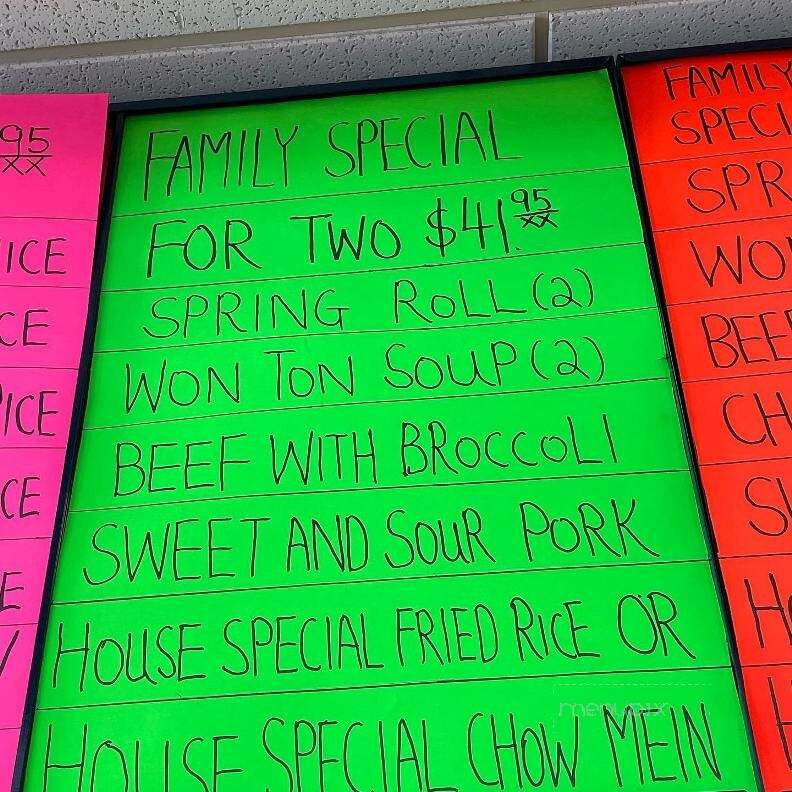 95
XX
ICE
CE
ICE
CE
E
FAMILY SPECIAL
FOR TWO $41.95
XX
SPRING ROLL (2)
WON TON SOUP (2)
BEEF WITH BROCCOLI
SWEET AND SOUR PORK
HOUSE SPECIAL FRIED RICE OR
HOUSE SPECIAL CHOW MEIN
FAMILY
SPECI
SPR
WO
BEE
CH
menupix